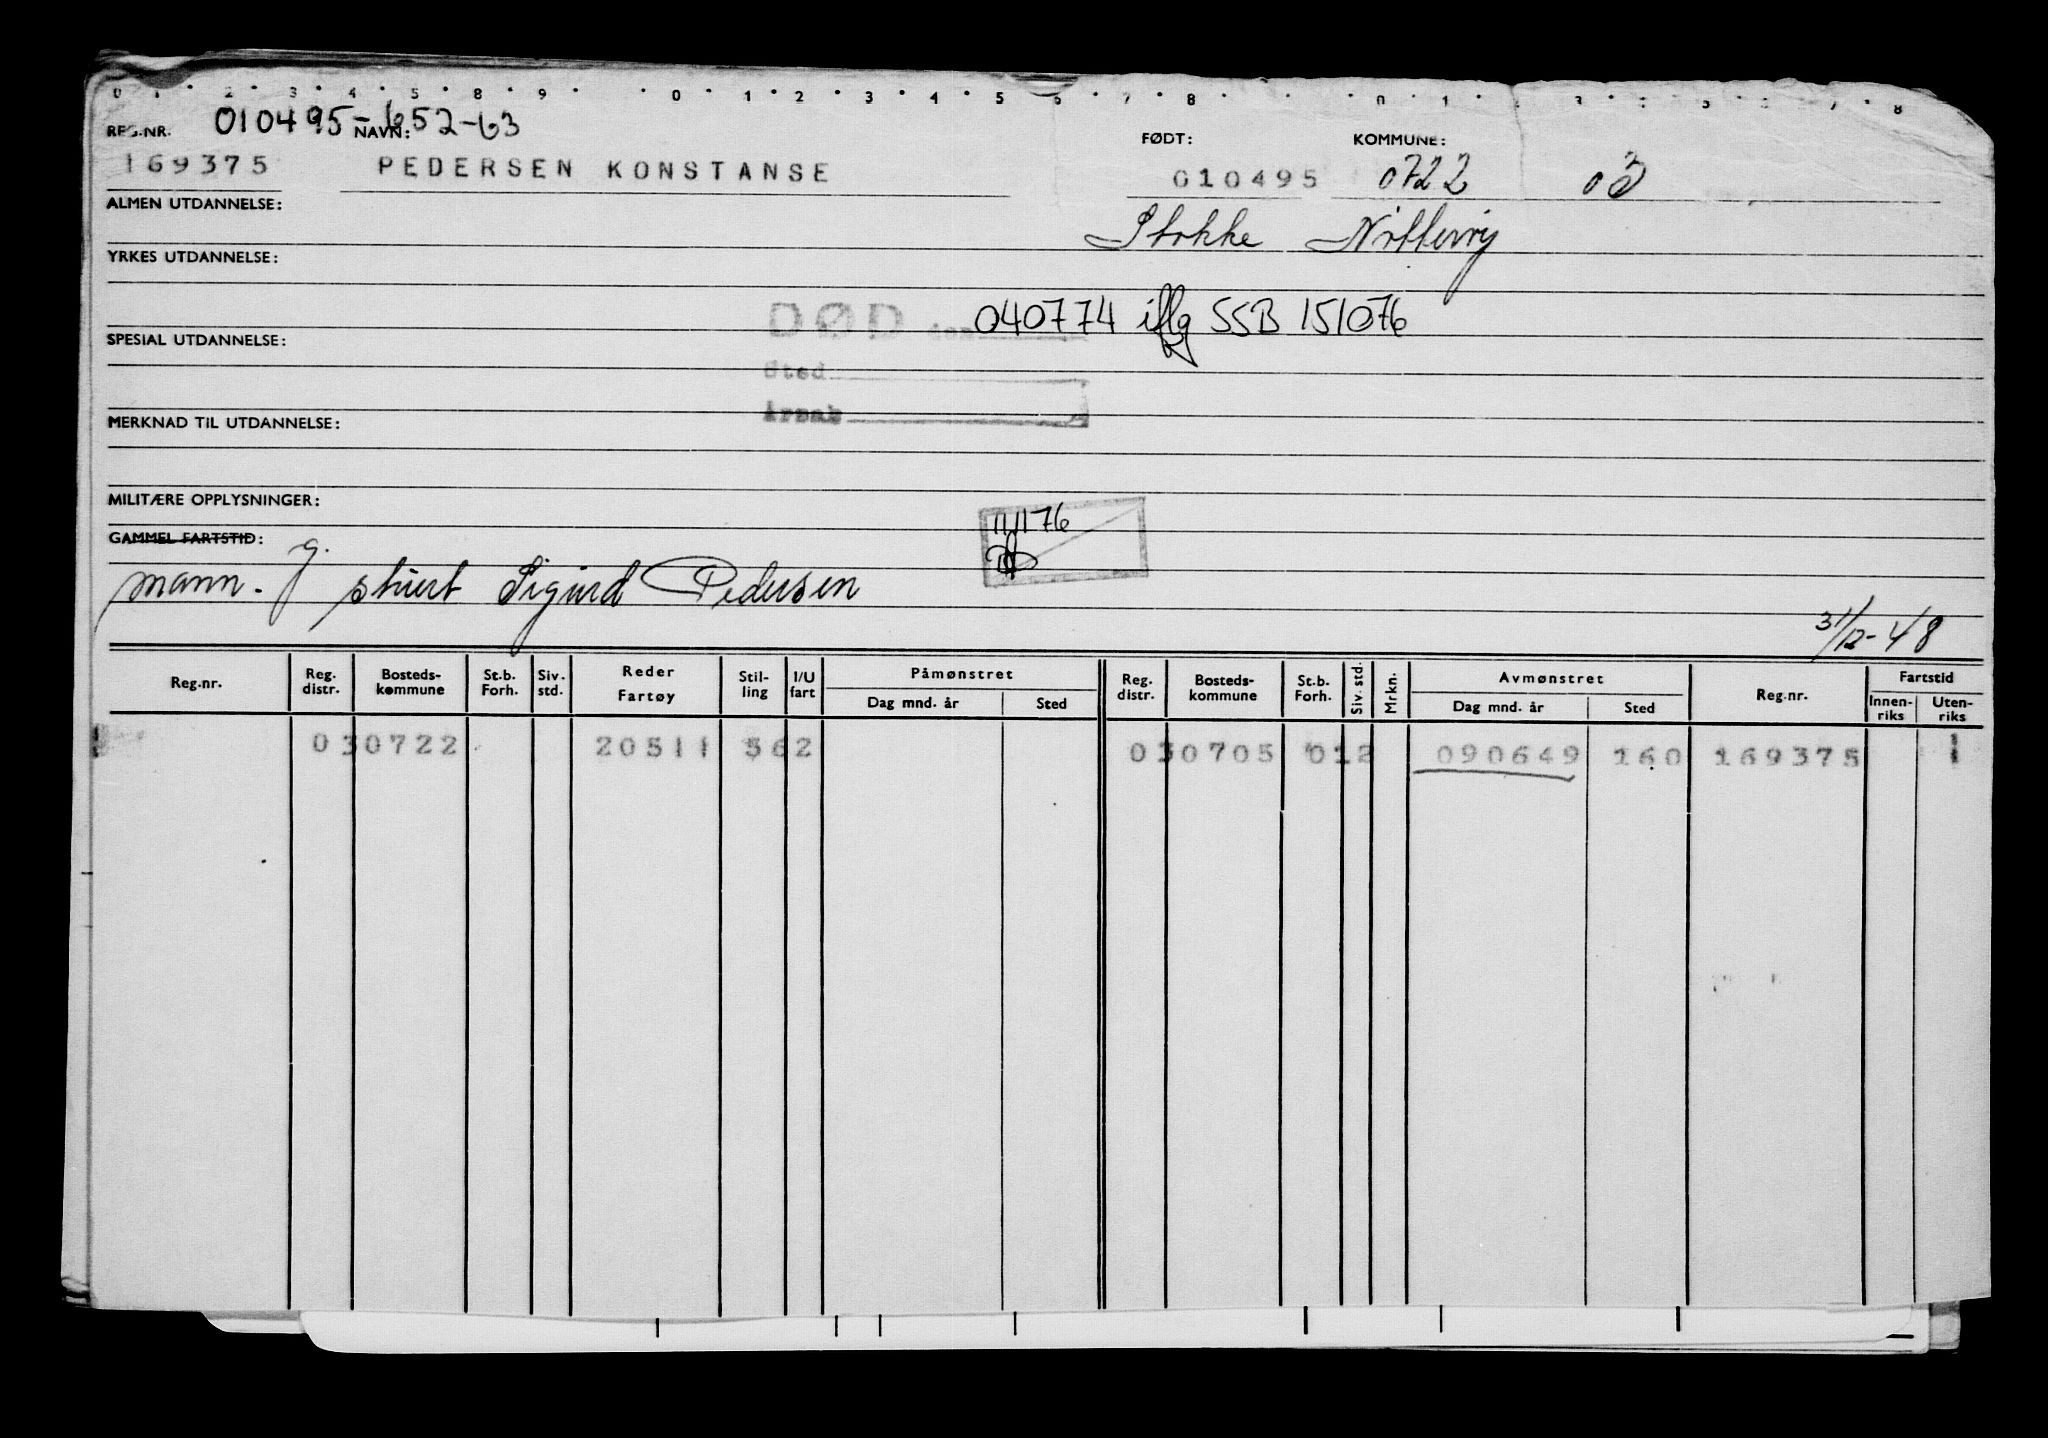 0 1 2 3 4 5 8 9 0 1 2 3 4 5 6 7 8 0 1 3 7 8
010495-652-63
REG.NR. NAVN: FØDT: KOMMUNE:
169375 PEDERSEN KONSTANSE 010495 0722 03
ALMEN UTDANNELSE:
Stokke Nøtterøy
YRKES UTDANNELSE:
DØD den 040774 iflg SSB 151076
SPESIAL UTDANNELSE:
Sted
Årsak
MERKNAD TIL UTDANNELSE:
MILITÆRE OPPLYSNINGER:
11/1176
GAMMEL FARTSTID:
mann. g. stuert Sigurd Pedersen
31/12-48
Reg.nr. Reg. distr. Bosteds-kommune St.b. Forh. Siv. std. Reder Fartøy Stil-ling I/U fart Påmønstret Dag mnd. år Sted Reg. distr. Bosteds-kommune St.b. Forh. Siv. std. Mrkn. Avmønstret Dag mnd. år Sted Reg.nr. Fartstid Innen-riks Uten-riks
030722 20511 562 030705 012 090649 160 169375 1